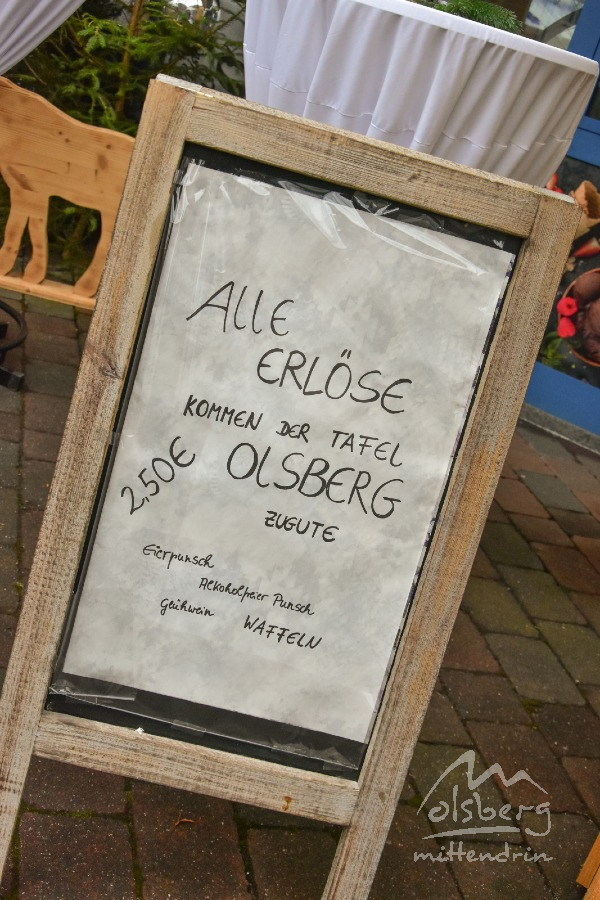 ALLE
ERLÖSE
KOMMEN DER TAFEL
OLSBERG
2,50€
ZUGUTE
Eierpunsch
Alkoholfreier Punsch
Glühwein
WAFFELN
olsberg
mittendrin